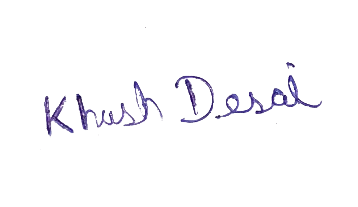 Khush Desai